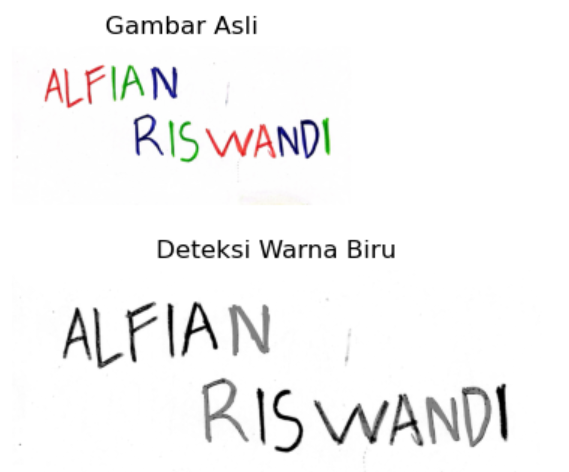 Gambar Asli
ALFIAN
RISWANDI
Deteksi Warna Biru
ALFIAN
RISWANDI